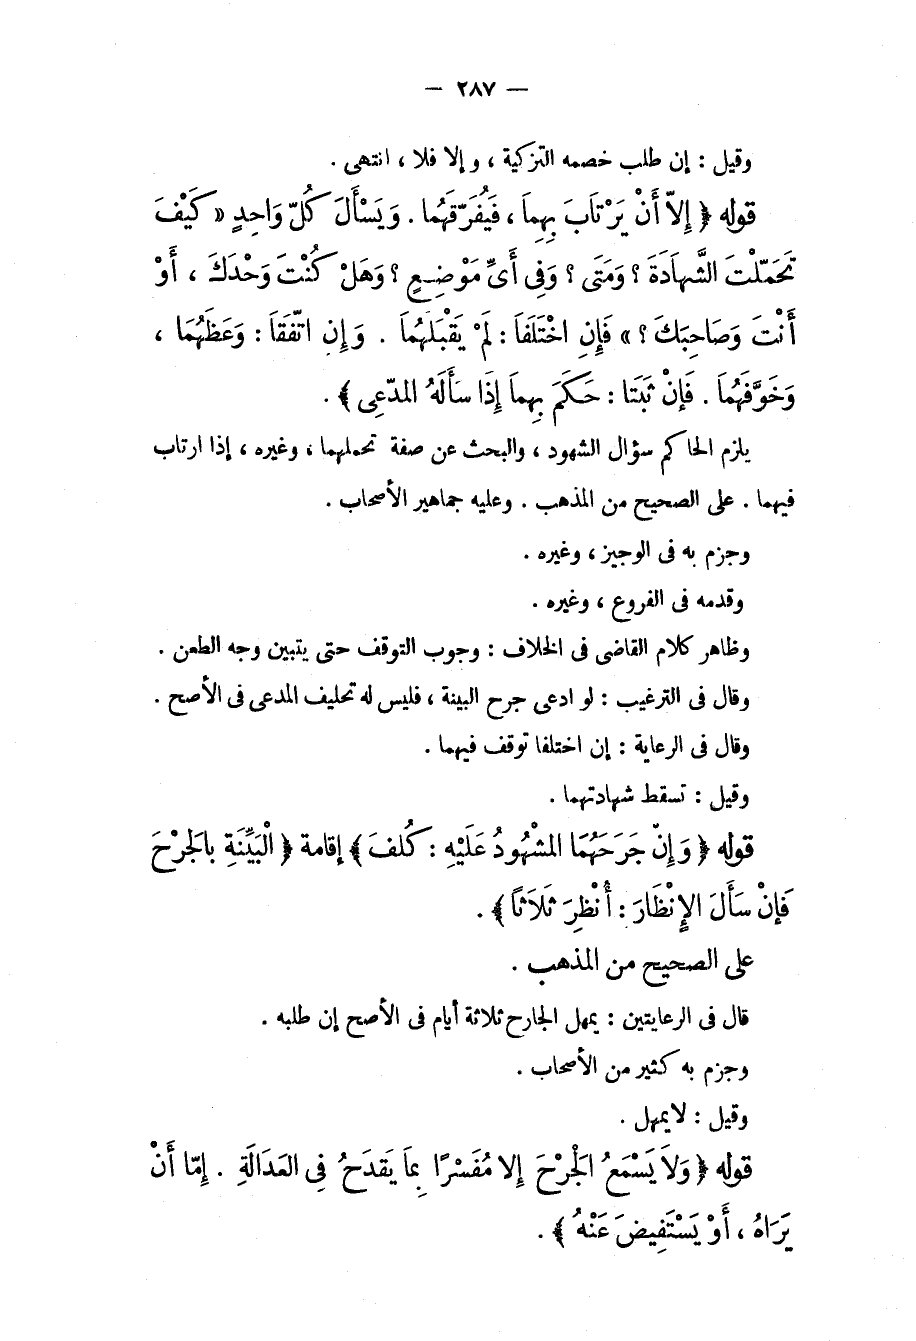 — ٢٨٧ —
وقيل : إن طلب خصمه التزكية ، و إلا فلا ، انتهى .
قوله ﴿ إِلاَّ أَنْ يَرْتَابَ بِهِمَا ، فَيُفَرِّقَهُما . وَيَسْأَلَ كُلَّ وَاحِدٍ « كَيْفَ
تَحَمَّلْتَ الشَّهادَةَ ؟ وَمَتَى ؟ وَفِى أَىِّ مَوْضِعٍ ؟ وَهَلْ كُنْتَ وَحْدَكَ ، أَوْ
أَنْتَ وَصَاحِبَكَ ؟ » فَإِنِ اخْتَلَفَا : لَمْ يَقْبَلْهُمَا . وَإِنِ اتَّفَقَا : وَعَظَهُمَا ،
وَخَوَّفَهُمَا . فَإِنْ ثَبَتا : حَكَمَ بِهِمَا إِذَا سَأَلَهُ المدَّعِى ﴾ .
يلزم الحاكم سؤال الشهود ، والبحث عن صفة تحملهما ، وغيره ، إذا ارتاب
فيهما . على الصحيح من المذهب . وعليه جماهير الأصحاب .
وجزم به فى الوجيز ، وغيره .
وقدمه فى الفروع ، وغيره .
وظاهر كلام القاضى فى الخلاف : وجوب التوقف حتى يتبين وجه الطعن .
وقال فى الترغيب : لو ادعى جرح البينة ، فليس له تحليف المدعى فى الأصح .
وقال فى الرعاية : إن اختلفا توقف فيهما .
وقيل : تسقط شهادتهما .
قوله ﴿ وَإِنْ جَرَحَهُمَا المشْهُودُ عَلَيْهِ : كُلفَ ﴾ إقامة ﴿ الْبَيِّنَةِ بالجَرْحَ
فَإِنْ سَأَلَ الإِنْظَارَ : أُنْظِرَ ثَلَاثاً ﴾ .
على الصحيح من المذهب .
قال فى الرعايتين : يمهل الجارح ثلاثة أيام فى الأصح إن طلبه .
وجزم به كثير من الأصحاب .
وقيل : لا يمهل .
قوله ﴿ وَلاَ يَسْمَعُ الْجَرْحَ إِلا مُفَسْرًا بِمَا يَقدَحُ فِى العَدَالَةِ . إِمّا أَنْ
يَرَاهُ ، أَوْ يَسْتَفِيضَ عَنْهُ ﴾ .